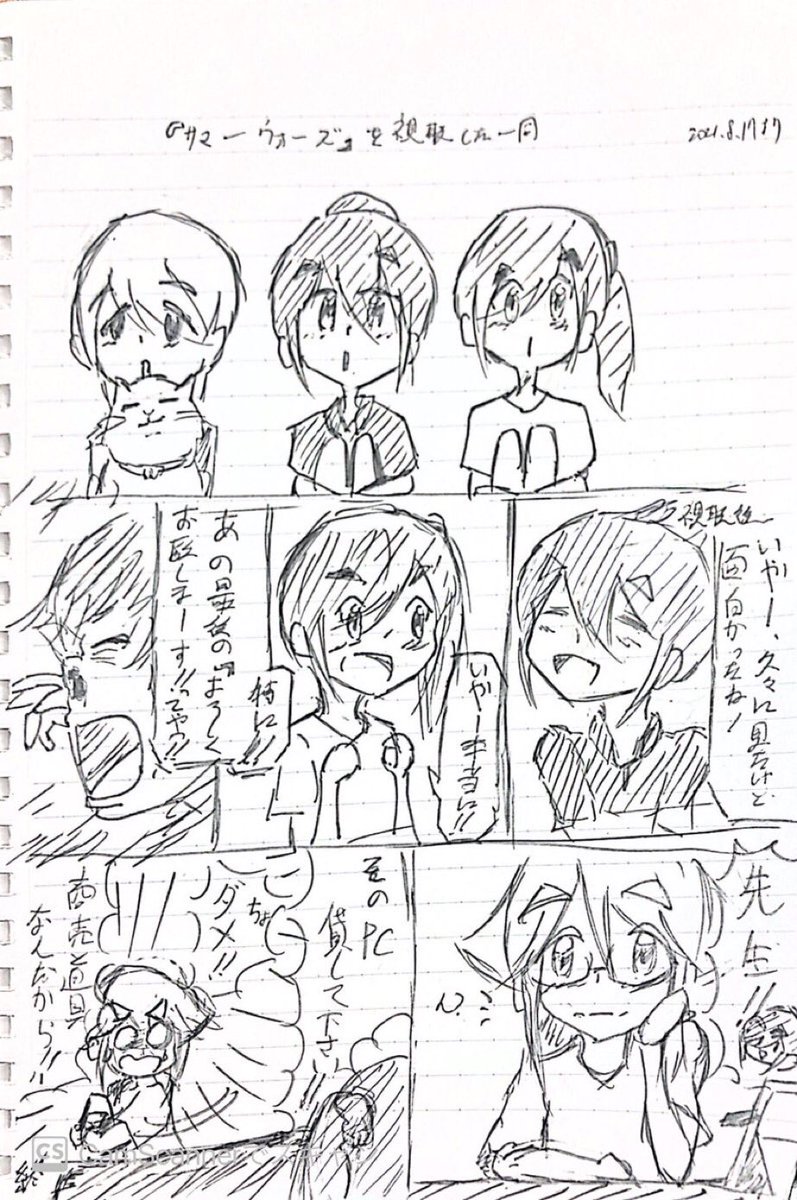 『サマーウォーズ』を視聴した一同
2021.8.17
視聴後
いやー、久々に見たけど
面白かったね!
いやー本当に!!
特に!!
あの最後の『よろしく
お願しまーす!!』ってやつ!!
先生!!
ん…
そのPC
貸して下さい!!
ちょ
ダメ!!
商売道具
なんだから!!
終
CS CamScannerでスキャン